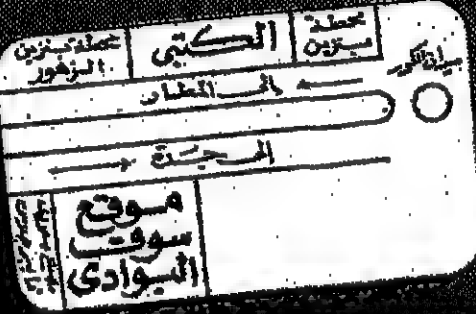 محطة بنزين
الزهور
الكتبي
محطة
بنزين
إلى المطار
إلى جدة
موقع
سوق
البوادي